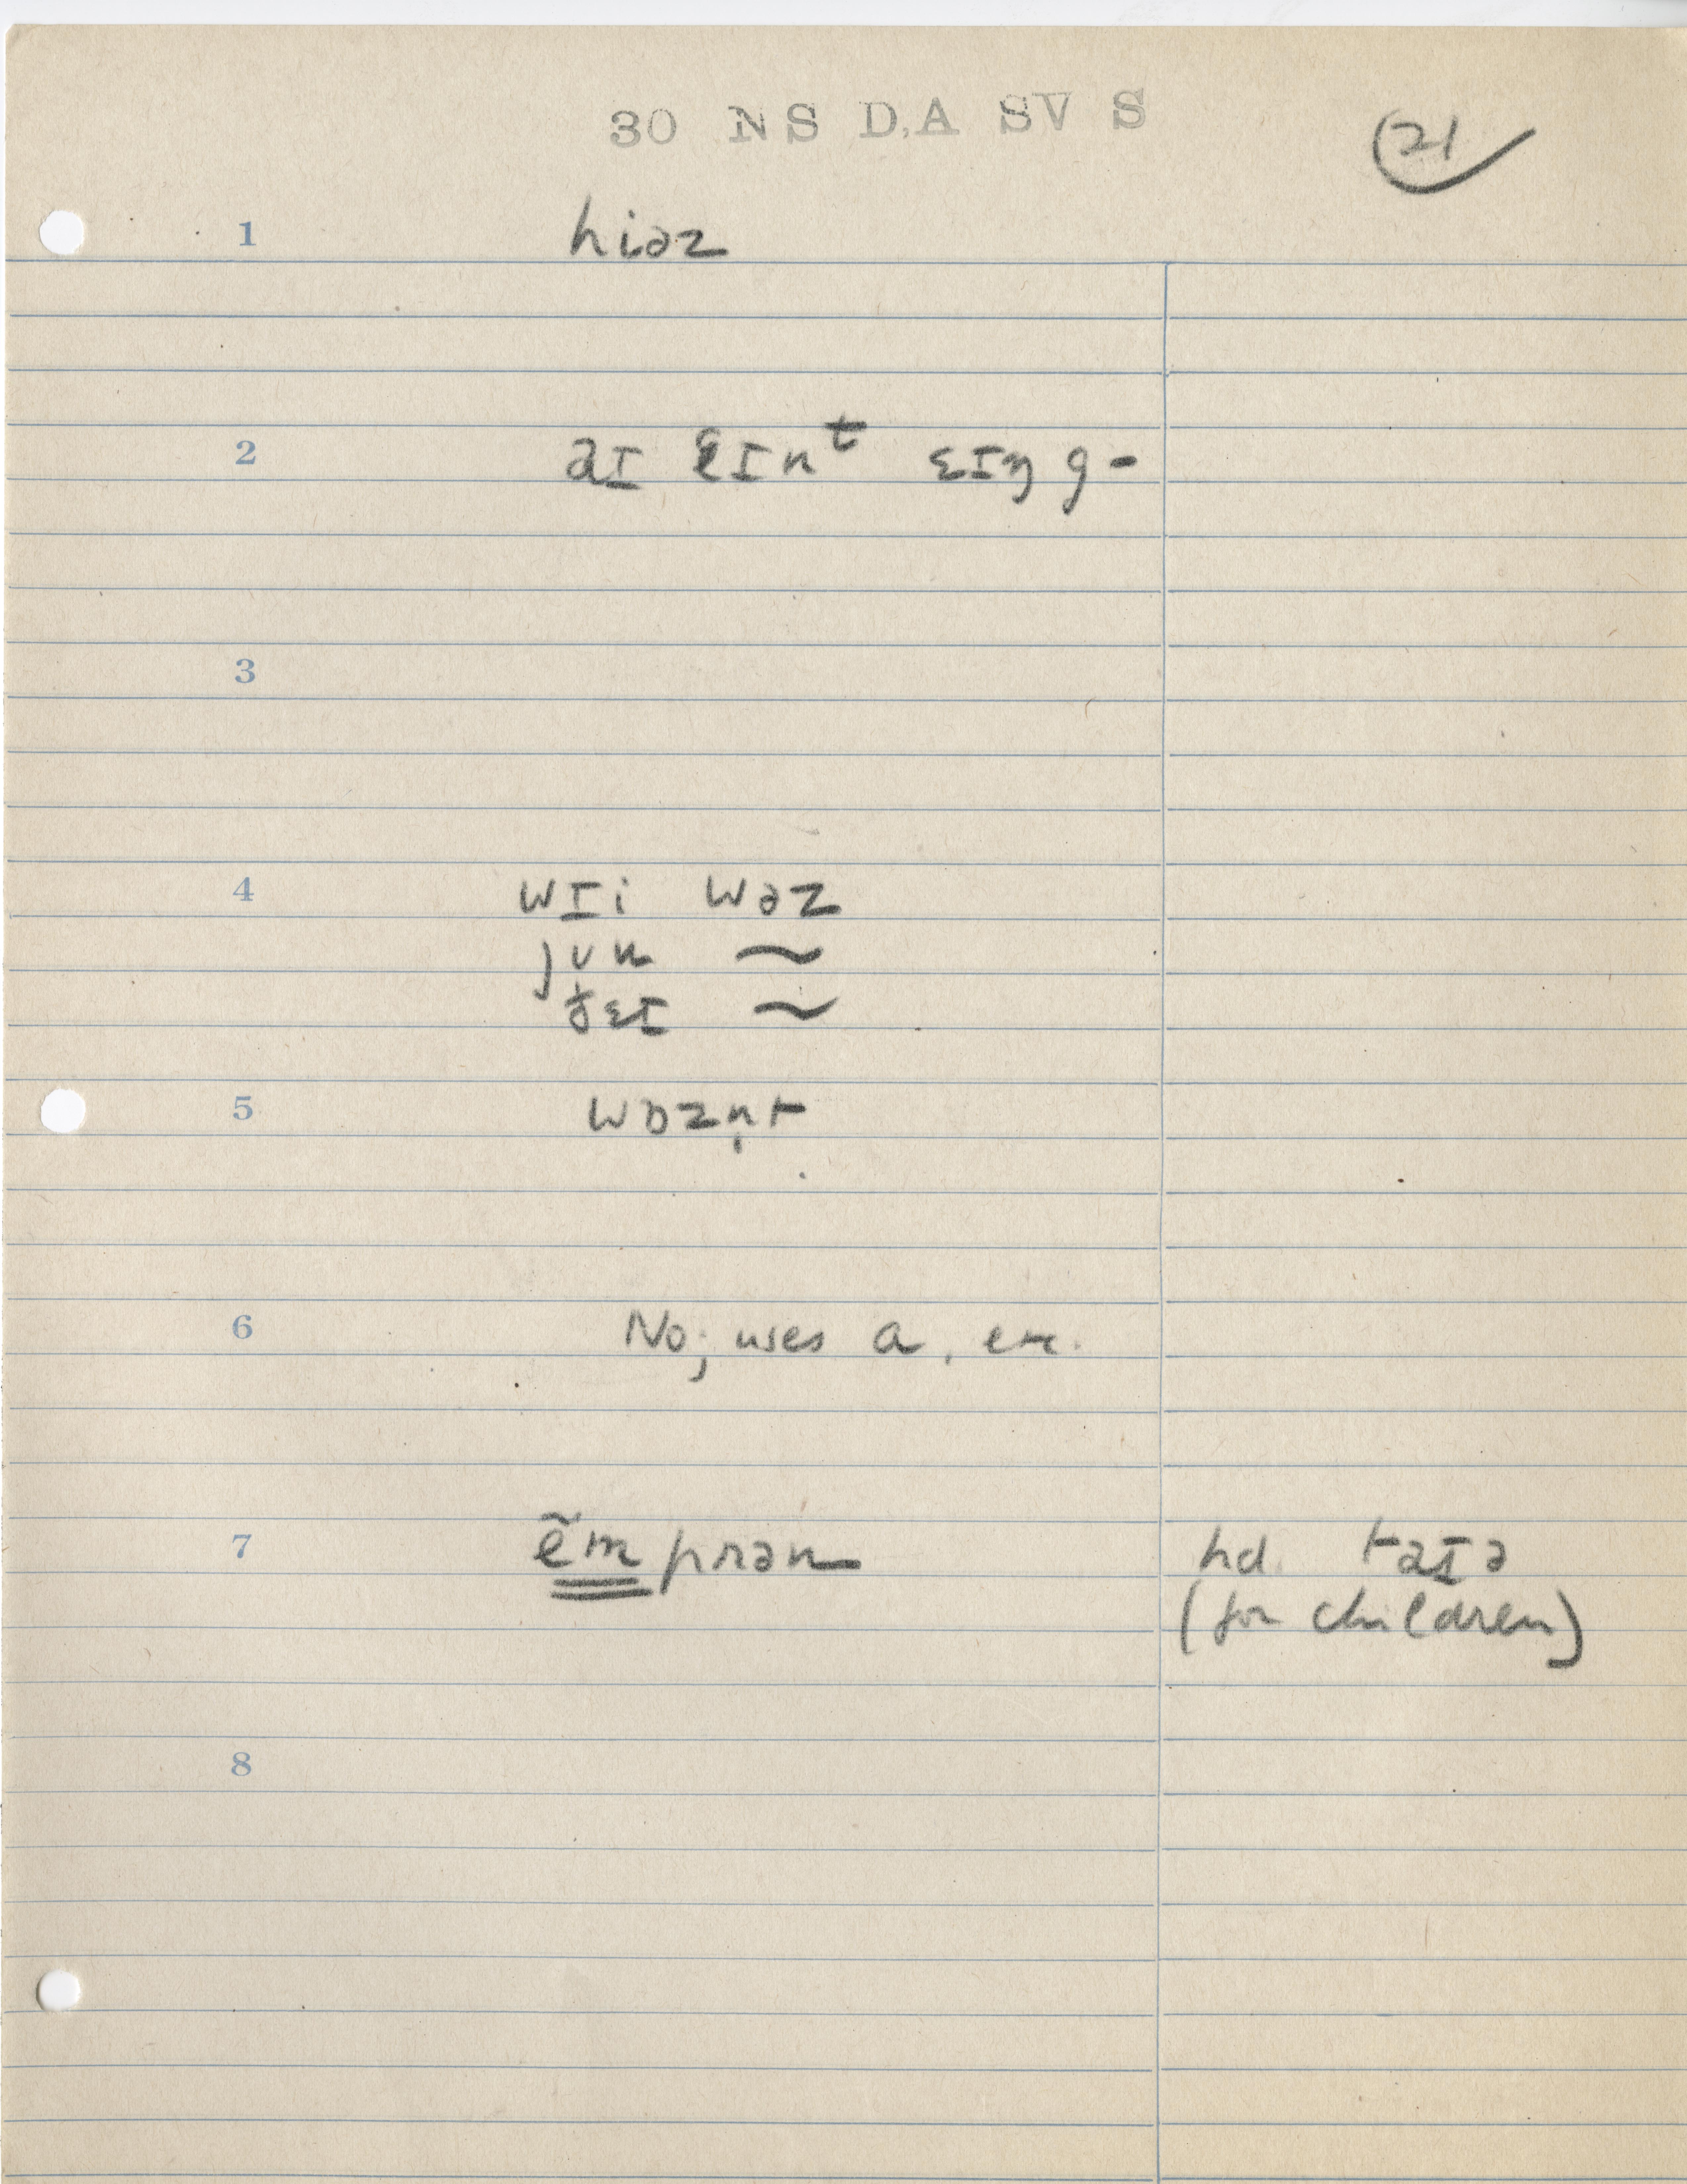 30 NS D,A SV S
21
1 hiəz
2 aɪ ɛɪnᵗ ɛɪŋ g-
3
4 wɪi wəz
jʊu ~
ðɛɪ ~
5 wɒzn̩t
6 No; uses a, etc.
7 ẽm prən hd. taɪə
(for children)
8